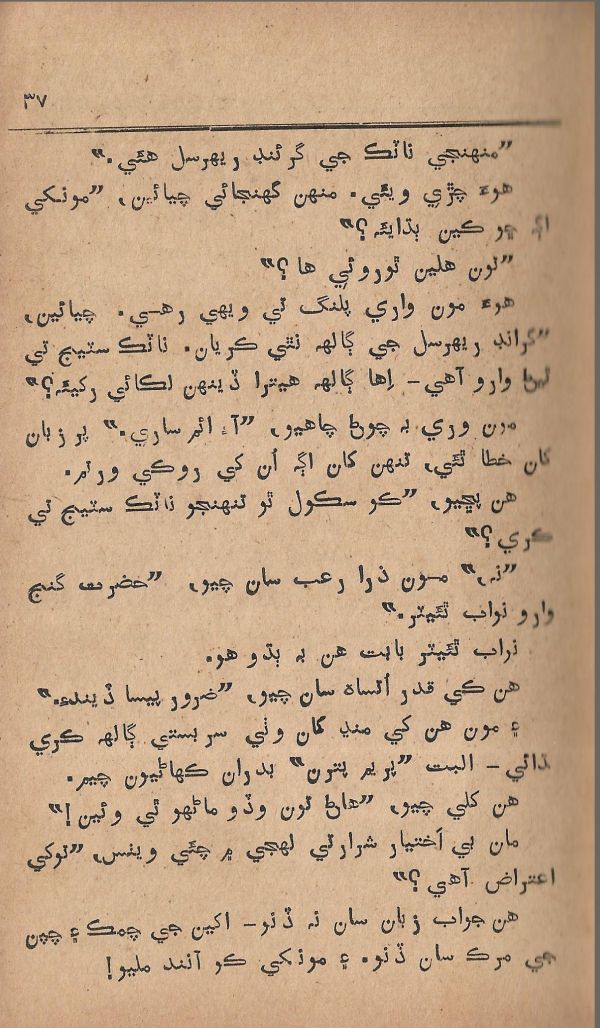 ٣٧
”منهنجي ناٽڪ جي گرئنڊ ريهرسل هئي.“
هوءَ چڙي ويئي. منهن گهنجائي چيائين، ”مونکي
اڳ ڇو ڪين ٻڌايئه؟“
”تون هلين ٿوروئي ها؟“
هوءَ مون واري پلنگ تي ويهي رهي. چيائين،
”گرانڊ ريهرسل جي ڳالهه نٿي ڪريان. ناٽڪ سٽيج ٿي
ٿيڻ وارو آهي – اِها ڳالهه هيترا ڏينهن لڪائي رکيئه؟“
مون وري به چوڻ چاهيو، ”آءِ ائم ساري.“ پر زبان
کان خطا ٿئي، تنهن کان اڳ اُن کي روڪي ورتم.
هن پڇيو، ”ڪو سڪول ٿو تنهنجو ناٽڪ سٽيج تي
ڪري؟“
”نه،“ مون ذرا رعب سان چيو، ”حضرت گنج
وارو نواب ٿئيٽر.“
نواب ٿئيٽر بابت هن به ٻڌو هو.
هن ڪي قدر اُتساهه سان چيو، ”ضرور پيسا ڏيندءِ.“
۽ مون هن کي منڍ کان وٺي سربستي ڳالهه ڪري
ٻڌائي – البت ”پريم پترن“ بدران ڪهاڻيون چيم.
هن کلي چيو، ”هاڻ تون وڏو ماڻهو ٿي وئين!“
مان بي اَختيار شرارتي لهجي ۾ چئي ويٺس، ”توکي
اعتراض آهي؟“
هن جواب زبان سان نه ڏنو – اکين جي چمڪ ۽ چپن
جي مرڪ سان ڏنو. ۽ مونکي ڪو آنند مليو!